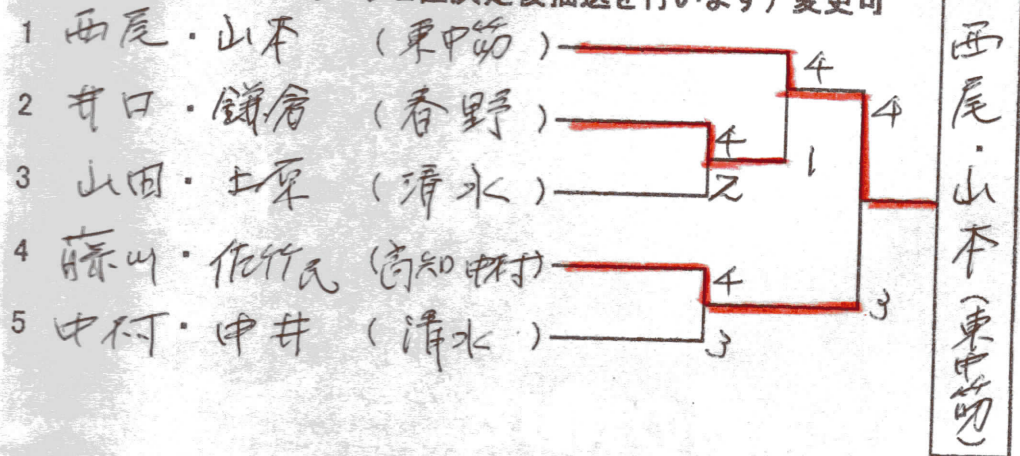 後抽選を行います）変更可
1 西尾・山本 （東中筋）
2 井口・鎌倉 （春野）
3 山田・土 （清水）
4 藤山・佐竹民 （高知中村）
5 中村・中井 （清水）
4
4
4
2
1
4
3
3
西尾・山本（東中筋）